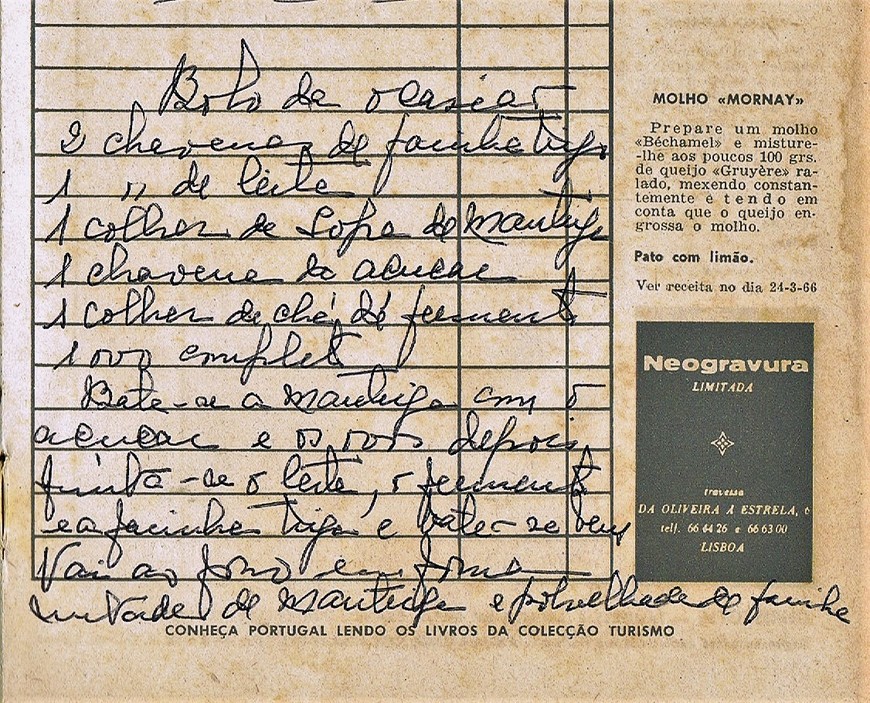 Bolo de ocasião
2 chavenas de farinha trigo
1 " de leite
1 colher de sopa de manteiga
1 chavena de açucar
1 colher de chá de fermento
1 ovo completo
Bate-se a manteiga com o
açucar e os ovos depois
junta-se o leite, o fermento
e a farinha trigo e bate-se bem
Vai ao forno em forma
untada de manteiga e polvilhada de farinha
MOLHO «MORNAY»
Prepare um molho
«Béchamel» e misture-
-lhe aos poucos 100 grs.
de queijo «Gruyère» ra-
lado, mexendo constan-
temente e tendo em
conta que o queijo en-
grossa o molho.
Pato com limão.
Ver receita no dia 24-3-66
Neogravura
LIMITADA
travessa
DA OLIVEIRA A ESTRELA, 6
telf. 66 44 26 e 66 63 00
LISBOA
CONHEÇA PORTUGAL LENDO OS LIVROS DA COLECÇÃO TURISMO